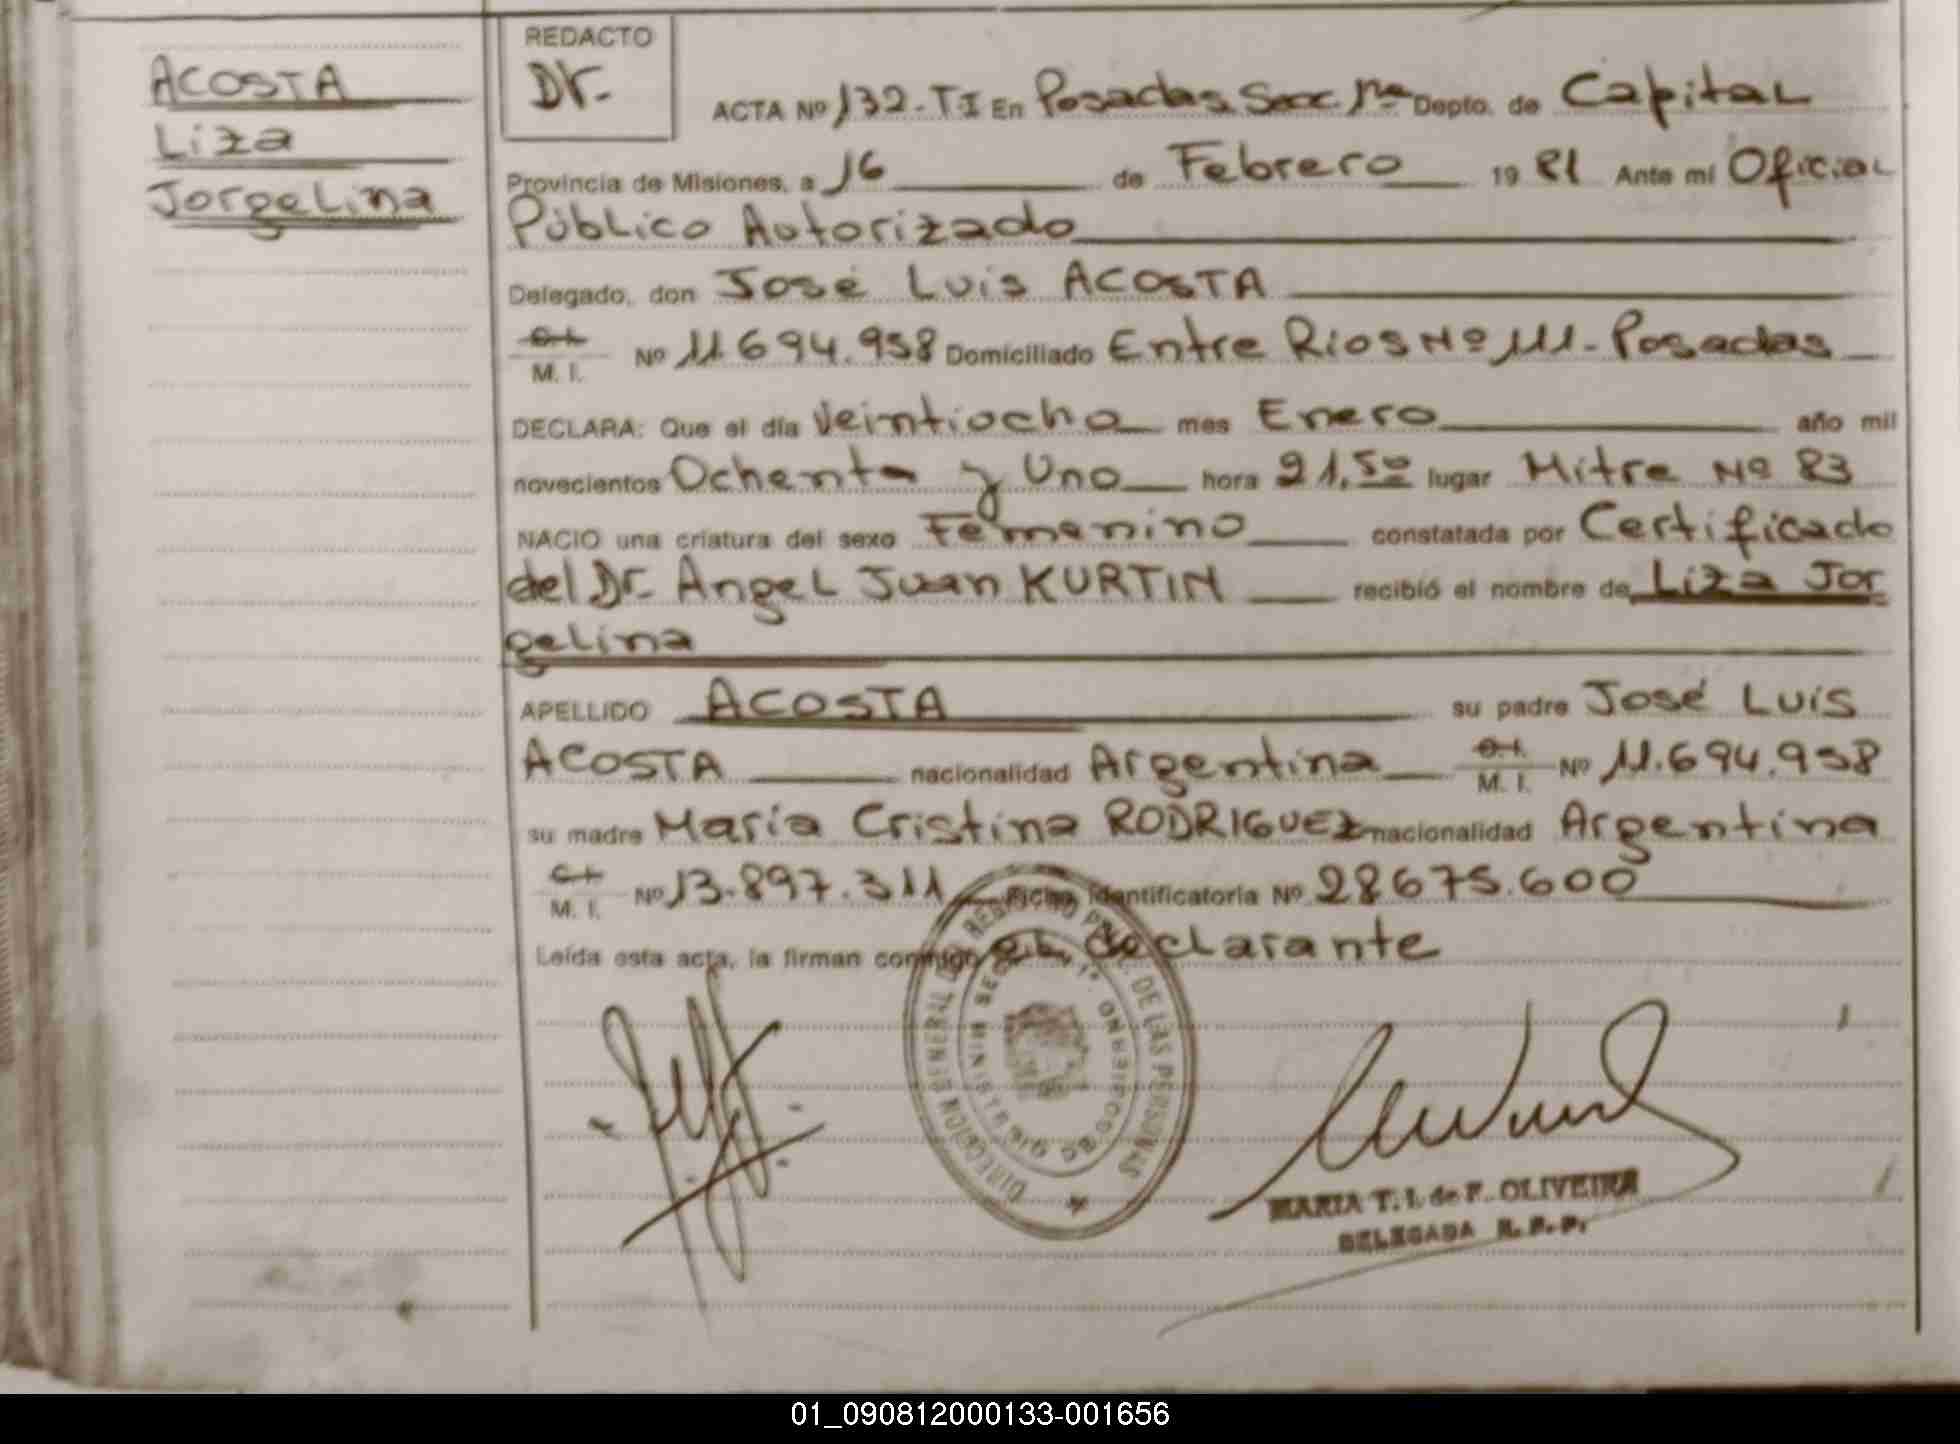 ACOSTA
Liza
Jorgelina
REDACTO
Dr.
ACTA Nº 132-TI En Posadas Secc. 1ra Depto. de Capital
Provincia de Misiones, a 16 de Febrero 1981 Ante mi Oficial
Público Autorizado
Delegado, don José Luis ACOSTA
M. I. Nº 11.694.958 Domiciliado Entre Rios Nº 111- Posadas
DECLARA: Que el día Veintiocho mes Enero año mil
novecientos Ochenta y Uno hora 21,50 lugar Mitre Nº 83
NACIO una criatura del sexo Femenino constatada por Certificado
del Dr. Angel Juan KURTIN recibió el nombre de Liza Jor
gelina
APELLIDO ACOSTA su padre José Luis
ACOSTA nacionalidad Argentina M. I. Nº 11.694.958
su madre María Cristina RODRIGUEZ nacionalidad Argentina
M. I. Nº 13.897.311 Ficha identificatoria Nº 28675.600
Leída esta acta, la firman conmigo el declarante
DIRECCION GENERAL DEL REGISTRO PROV. DE LAS PERSONAS
MINISTERIO DE GOBIERNO
MARIA T. I. de F. OLIVEIRA
DELEGADA R. P. P.
01_090812000133-001656